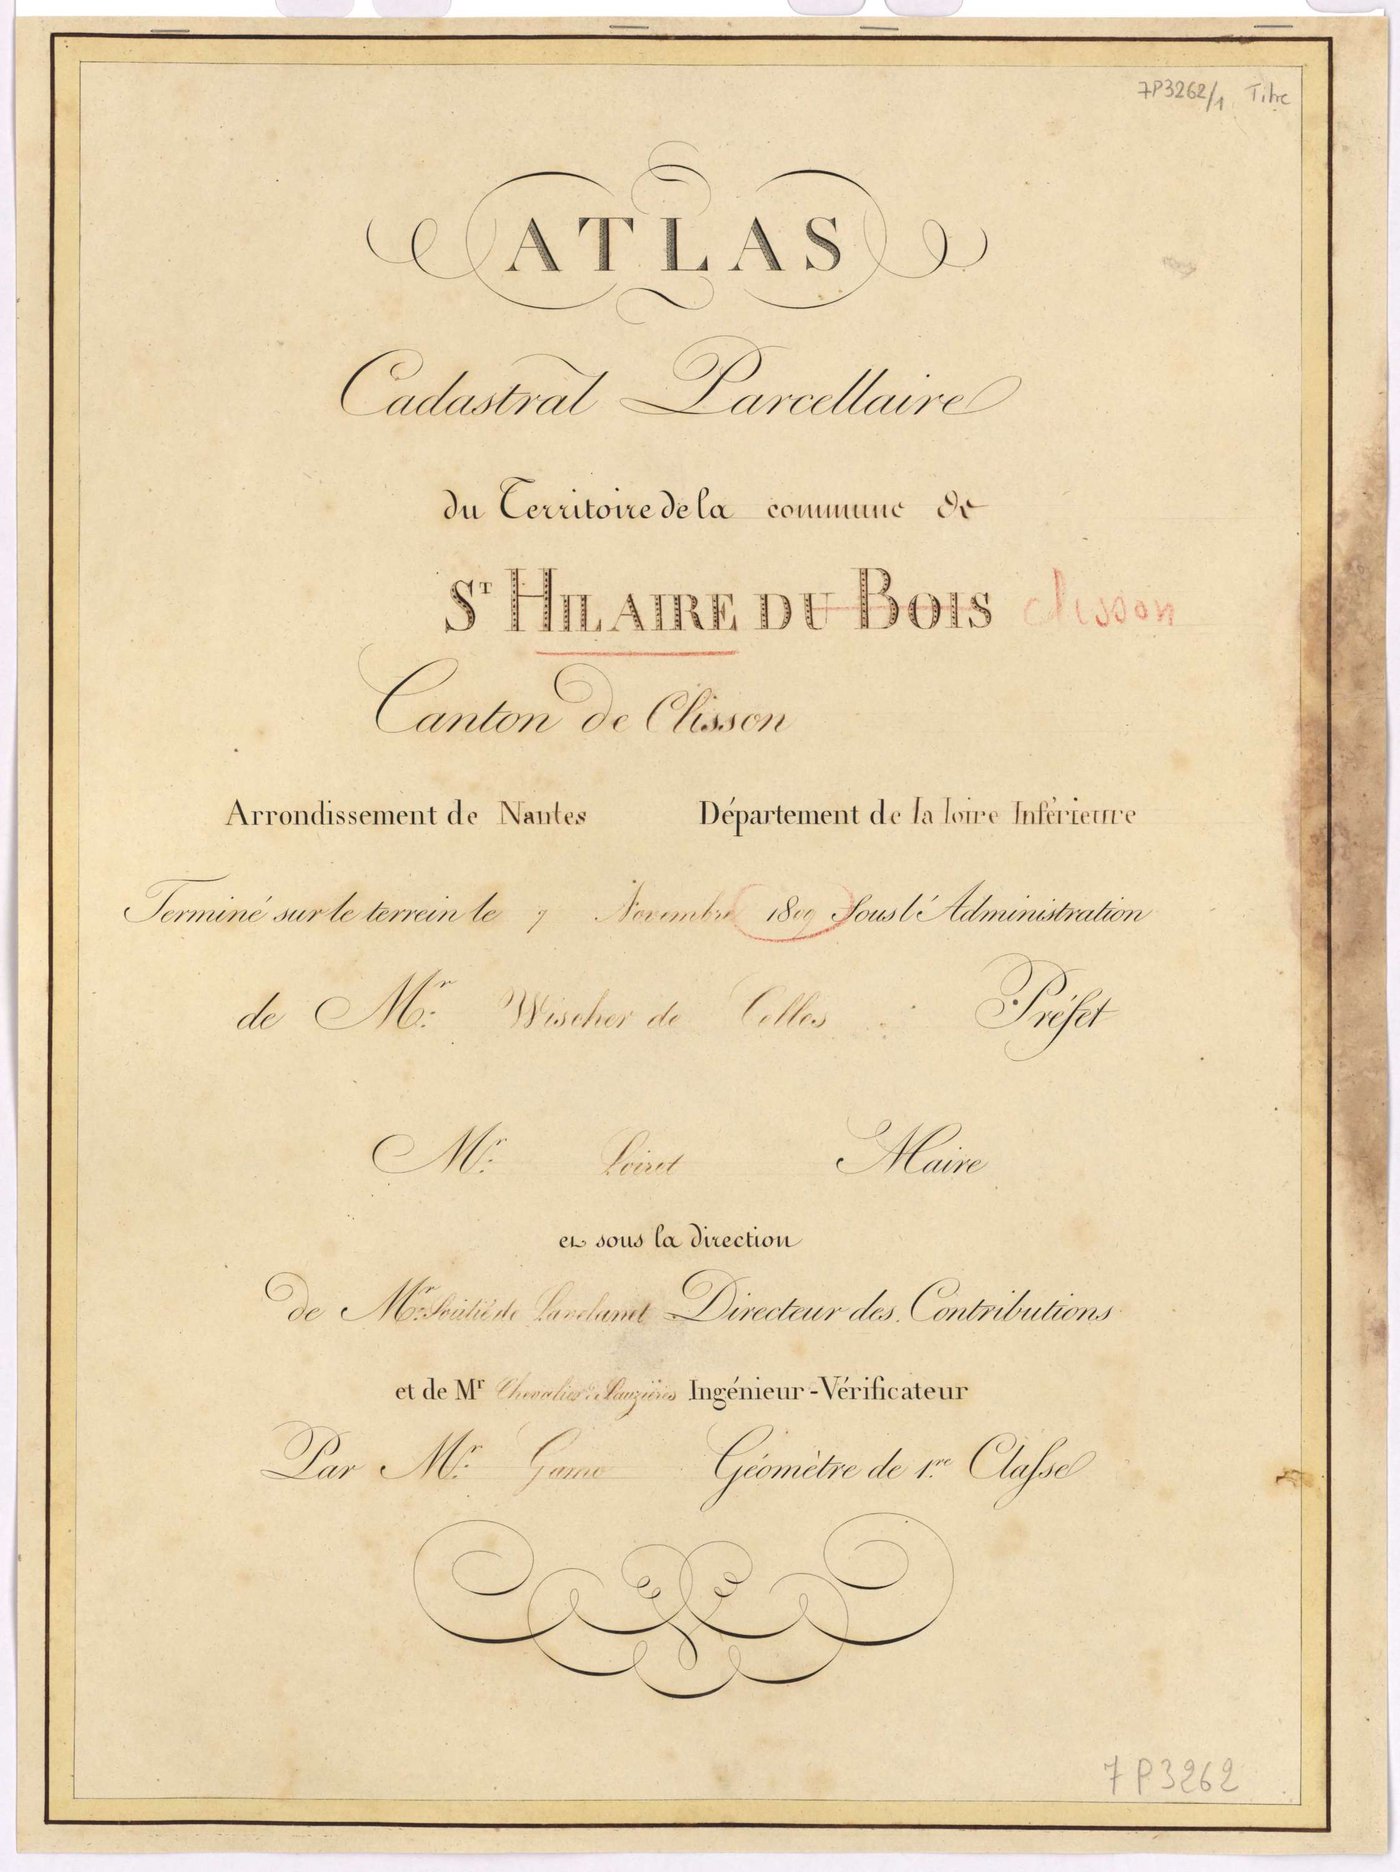 7P3262/1 Titre
ATLAS
Cadastral Parcellaire
du Territoire de la commune de
ST HILAIRE DU BOIS clisson
Canton de Clisson
Arrondissement de Nantes Département de la loire Inférieure
Terminé sur le terrein le 7 Novembre 1809 Sous l'Administration
de Mr. Wischer de Celles Préfet
Mr. Loiret Maire
et sous la direction
de Mr. de Lavelanet Directeur des Contributions
et de Mr Chevalier Ingénieur-Vérificateur
Par Mr. Géomètre de 1.re Classe
7P3262